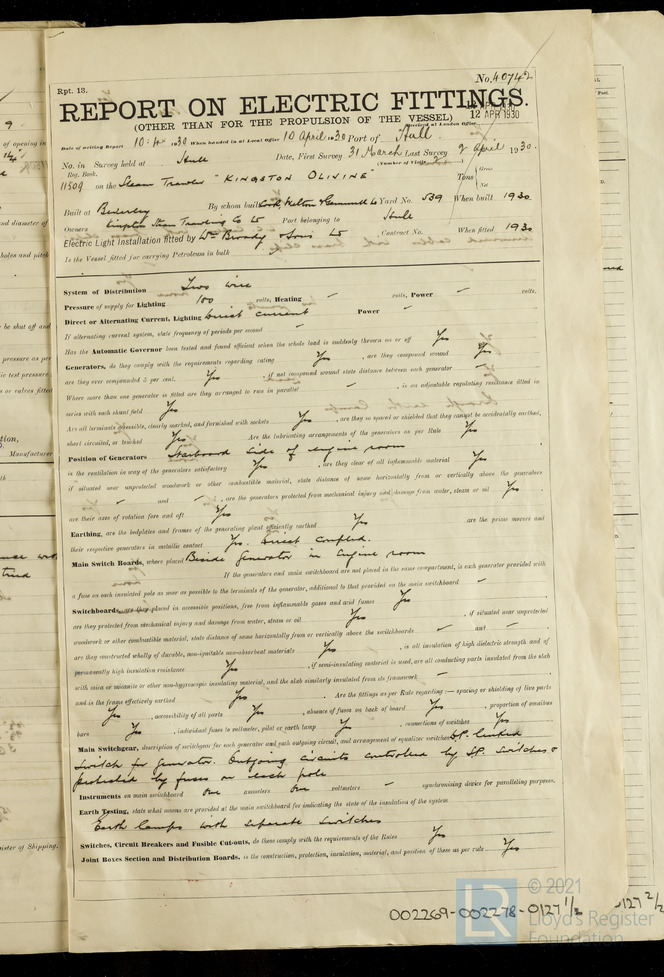 No. 40742
Rpt. 13.
REPORT ON ELECTRIC FITTINGS.
(OTHER THAN FOR THE PROPULSION OF THE VESSEL)
Received at London Office 12 APR 1930
Date of writing Report 10.4.1930 When handed in at Local Office 10 April 1930 Port of Hull
No. in Survey held at Hull Date, First Survey 31 March Last Survey 9 April 1930.
Reg. Book. (Number of Visits
11509 on the Steam Trawler "KINGSTON OLIVINE" Tons { Gross Net
Built at Beverley By whom built Cook, Welton & Gemmell Ld Yard No. 539 When built 1930
Owners Kingston Steam Trawling Co Ld Port belonging to Hull
Electric Light Installation fitted by Wm Broady & Sons Ld Contract No. When fitted 1930
Is the Vessel fitted for carrying Petroleum in bulk
System of Distribution Two wire
Pressure of supply for Lighting 100 volts, Heating – volts, Power – volts.
Direct or Alternating Current, Lighting Direct current Power –
If alternating current system, state frequency of periods per second –
Has the Automatic Governor been tested and found efficient when the whole load is suddenly thrown on or off Yes
Generators, do they comply with the requirements regarding rating Yes , are they compound wound Yes
are they over compounded 5 per cent. Yes , if not compound wound state distance between each generator –
Where more than one generator is fitted are they arranged to run in parallel – , is an adjustable regulating resistance fitted in
series with each shunt field Yes
Are all terminals accessible, clearly marked, and furnished with sockets Yes , are they so spaced or shielded that they cannot be accidentally earthed,
short circuited, or touched Yes Are the lubricating arrangements of the generators as per Rule Yes
Position of Generators Starboard side of engine room
is the ventilation in way of the generators satisfactory Yes , are they clear of all inflammable material Yes
if situated near unprotected woodwork or other combustible material, state distance of same horizontally from or vertically above the generators
– and – , are the generators protected from mechanical injury and damage from water, steam or oil Yes
are their axes of rotation fore and aft Yes
Earthing, are the bedplates and frames of the generating plant efficiently earthed Yes are the prime movers and
their respective generators in metallic contact Yes. Direct Coupled.
Main Switch Boards, where placed Beside generator in Engine room
If the generators and main switchboard are not placed in the same compartment, is each generator provided with
a fuse on each insulated pole as near as possible to the terminals of the generator, additional to that provided on the main switchboard –
Switchboards, are they placed in accessible positions, free from inflammable gases and acid fumes Yes
are they protected from mechanical injury and damage from water, steam or oil Yes , if situated near unprotected
woodwork or other combustible material, state distance of same horizontally from or vertically above the switchboards – and –
are they constructed wholly of durable, non-ignitable non-absorbent materials Yes , is all insulation of high dielectric strength and of
permanently high insulation resistance Yes , if semi-insulating material is used, are all conducting parts insulated from the slab
with mica or micanite or other non-hygroscopic insulating material, and the slab similarly insulated from its framework –
and is the frame effectively earthed Yes . Are the fittings as per Rule regarding :— spacing or shielding of live parts
Yes , accessibility of all parts Yes , absence of fuses on back of board Yes , proportion of omnibus
bars Yes , individual fuses to voltmeter, pilot or earth lamp Yes , connections of switches Yes
Main Switchgear, description of switchgear for each generator and each outgoing circuit, and arrangement of equalizer switches D.P. linked
switch for generator. Outgoing circuits controlled by S.P. switches &
protected by fuses on each pole
Instruments on main switchboard One ammeters One voltmeters – synchronising device for paralleling purposes.
Earth Testing, state what means are provided at the main switchboard for indicating the state of the insulation of the system
Earth lamps with separate switches
Switches, Circuit Breakers and Fusible Cut-outs, do these comply with the requirements of the Rules Yes
Joint Boxes Section and Distribution Boards, is the construction, protection, insulation, material, and position of these as per rule Yes
002269-002278-0127 1/2
0127 2/2
LR
© 2021
Lloyd's Register
Foundation